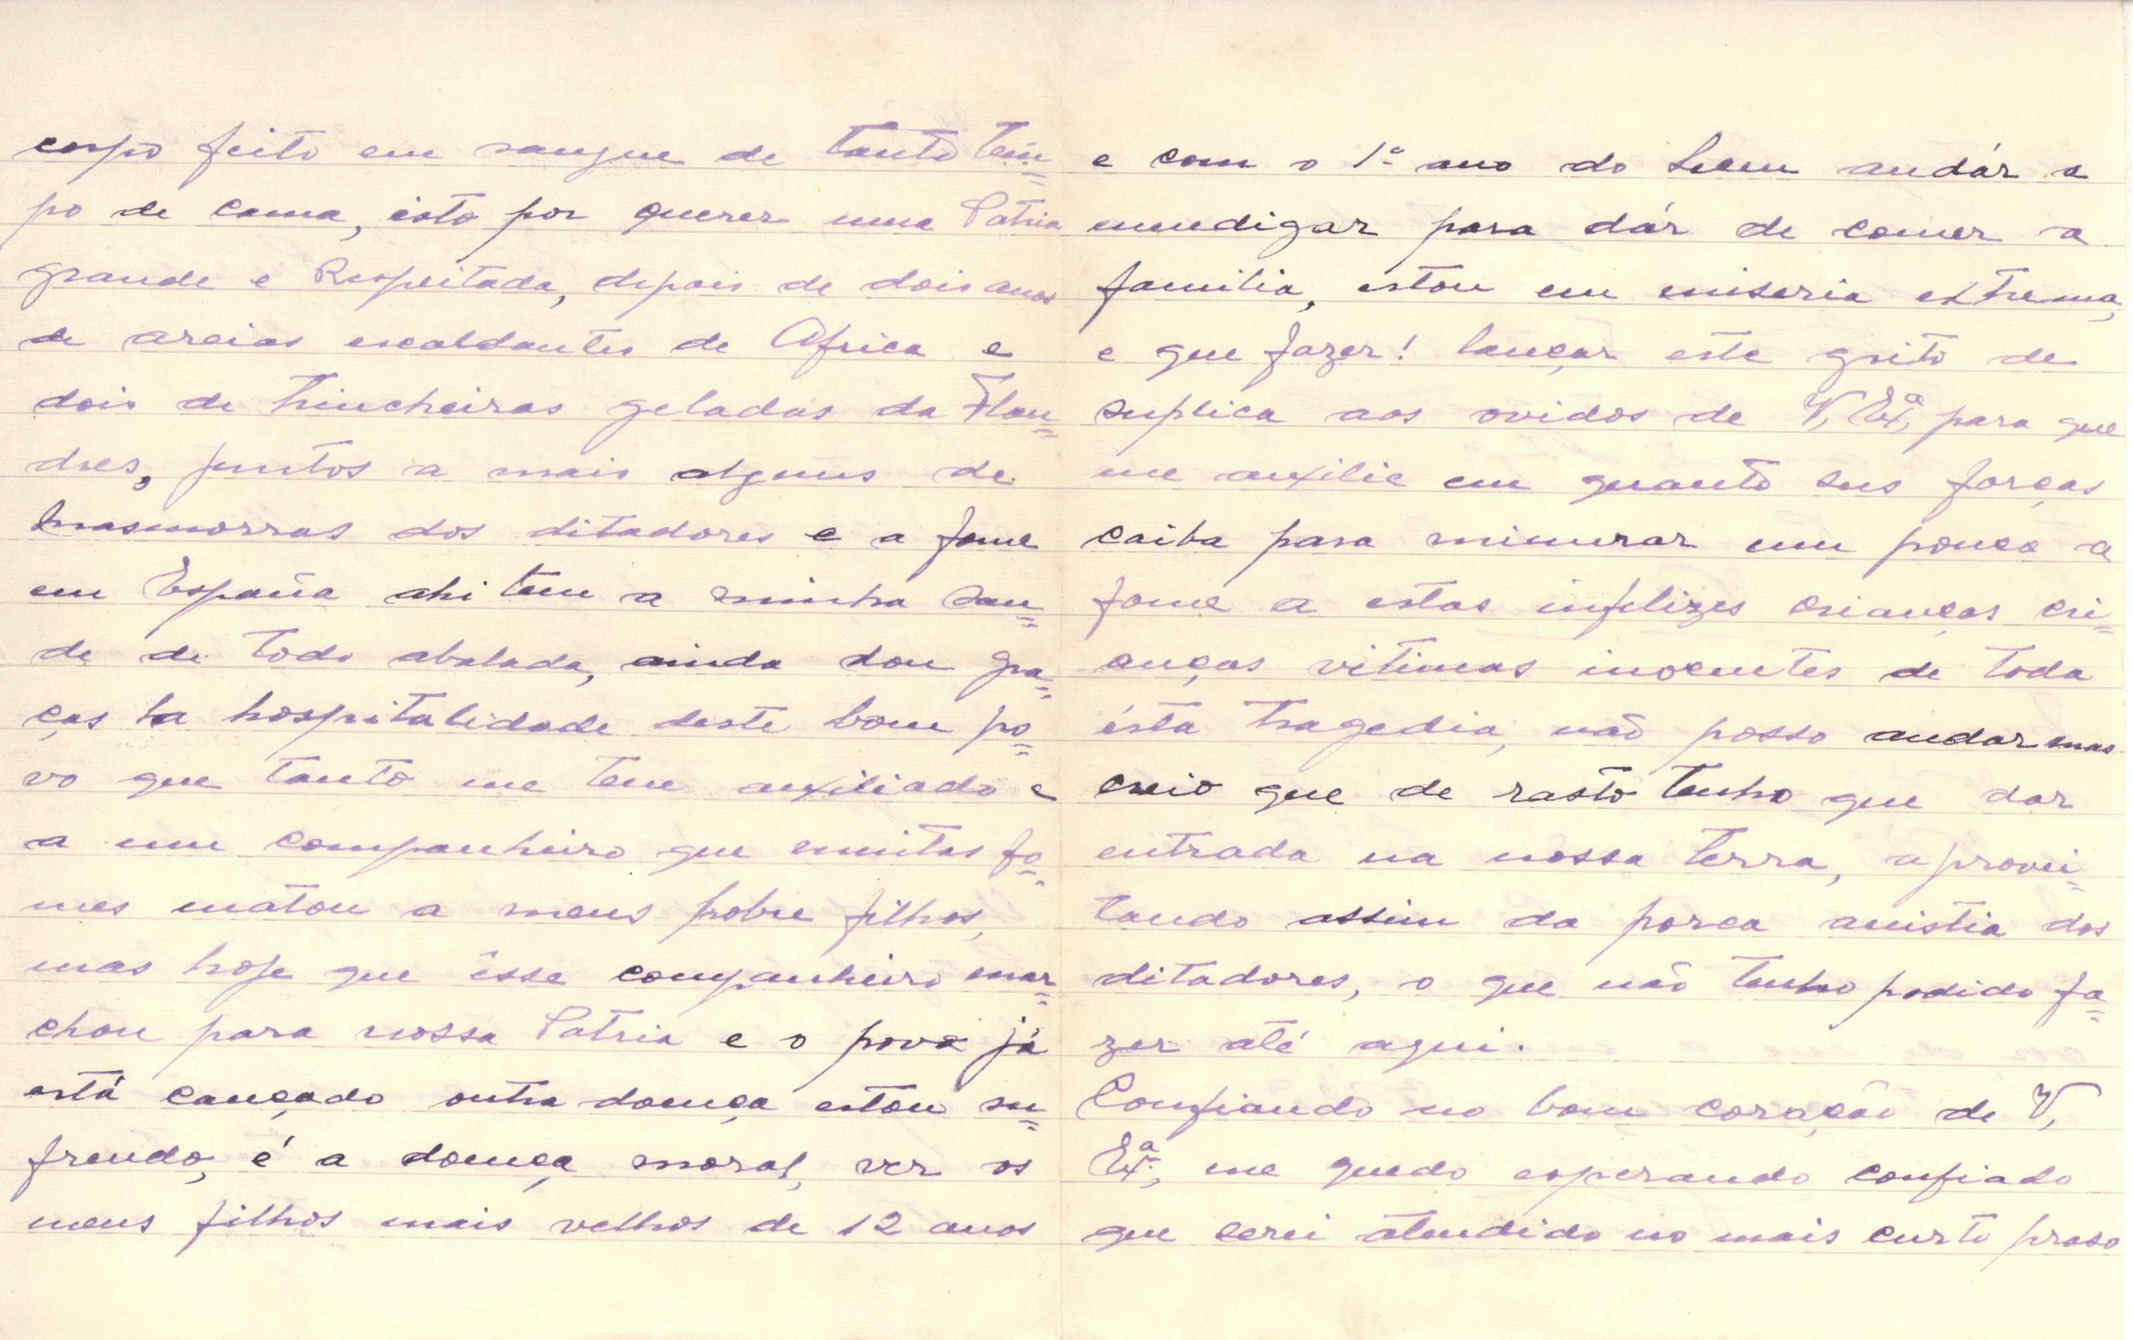 corpo feito em sangue de tanto tem=
po de cama, isto por querer uma Patria
grande e Respeitada, depois de dois anos
de areias escaldantes de Africa e
dois de trincheiras geladas da Flan=
dres, juntos a mais alguns de
masmorras dos ditadores e a fome
em España ahi tem a minha sau=
de de todo abalada, ainda dou gra=
ças ha hospitalidade deste bom po=
vo que tanto me tem auxiliado e
a um companheiro que muitas fo=
mes matou a meus pobre filhos,
mas hoje que ésse companheiro mar=
chou para nossa Patria e o povo já
está cançado outra doença estou su=
frendo, é a doença moral, ver os
meus filhos mais velhos de 12 anos
e com o 1º ano do Liceu andár a
mendigar para dár de comer a
familia, estou em miseria extrema,
e que fazer! lançar este grito de
suplica aos ouvidos de V, Exª, para que
me auxilie em quanto sus forças
caiba para minurar um pouco a
fome a estas infelizes crianças cri=
anças vitimas inocentes de toda
ésta tragedia, não posso andar mas
creio que de rasto tenho que dar
entrada na nossa terra, aprovei=
tando assim da porca anistia dos
ditadores, o que não tenho podido fa=
zer até aqui.
Confiando no bom coração de V,
Exª, me quedo esperando confiado
que serei atendido no mais curto praso